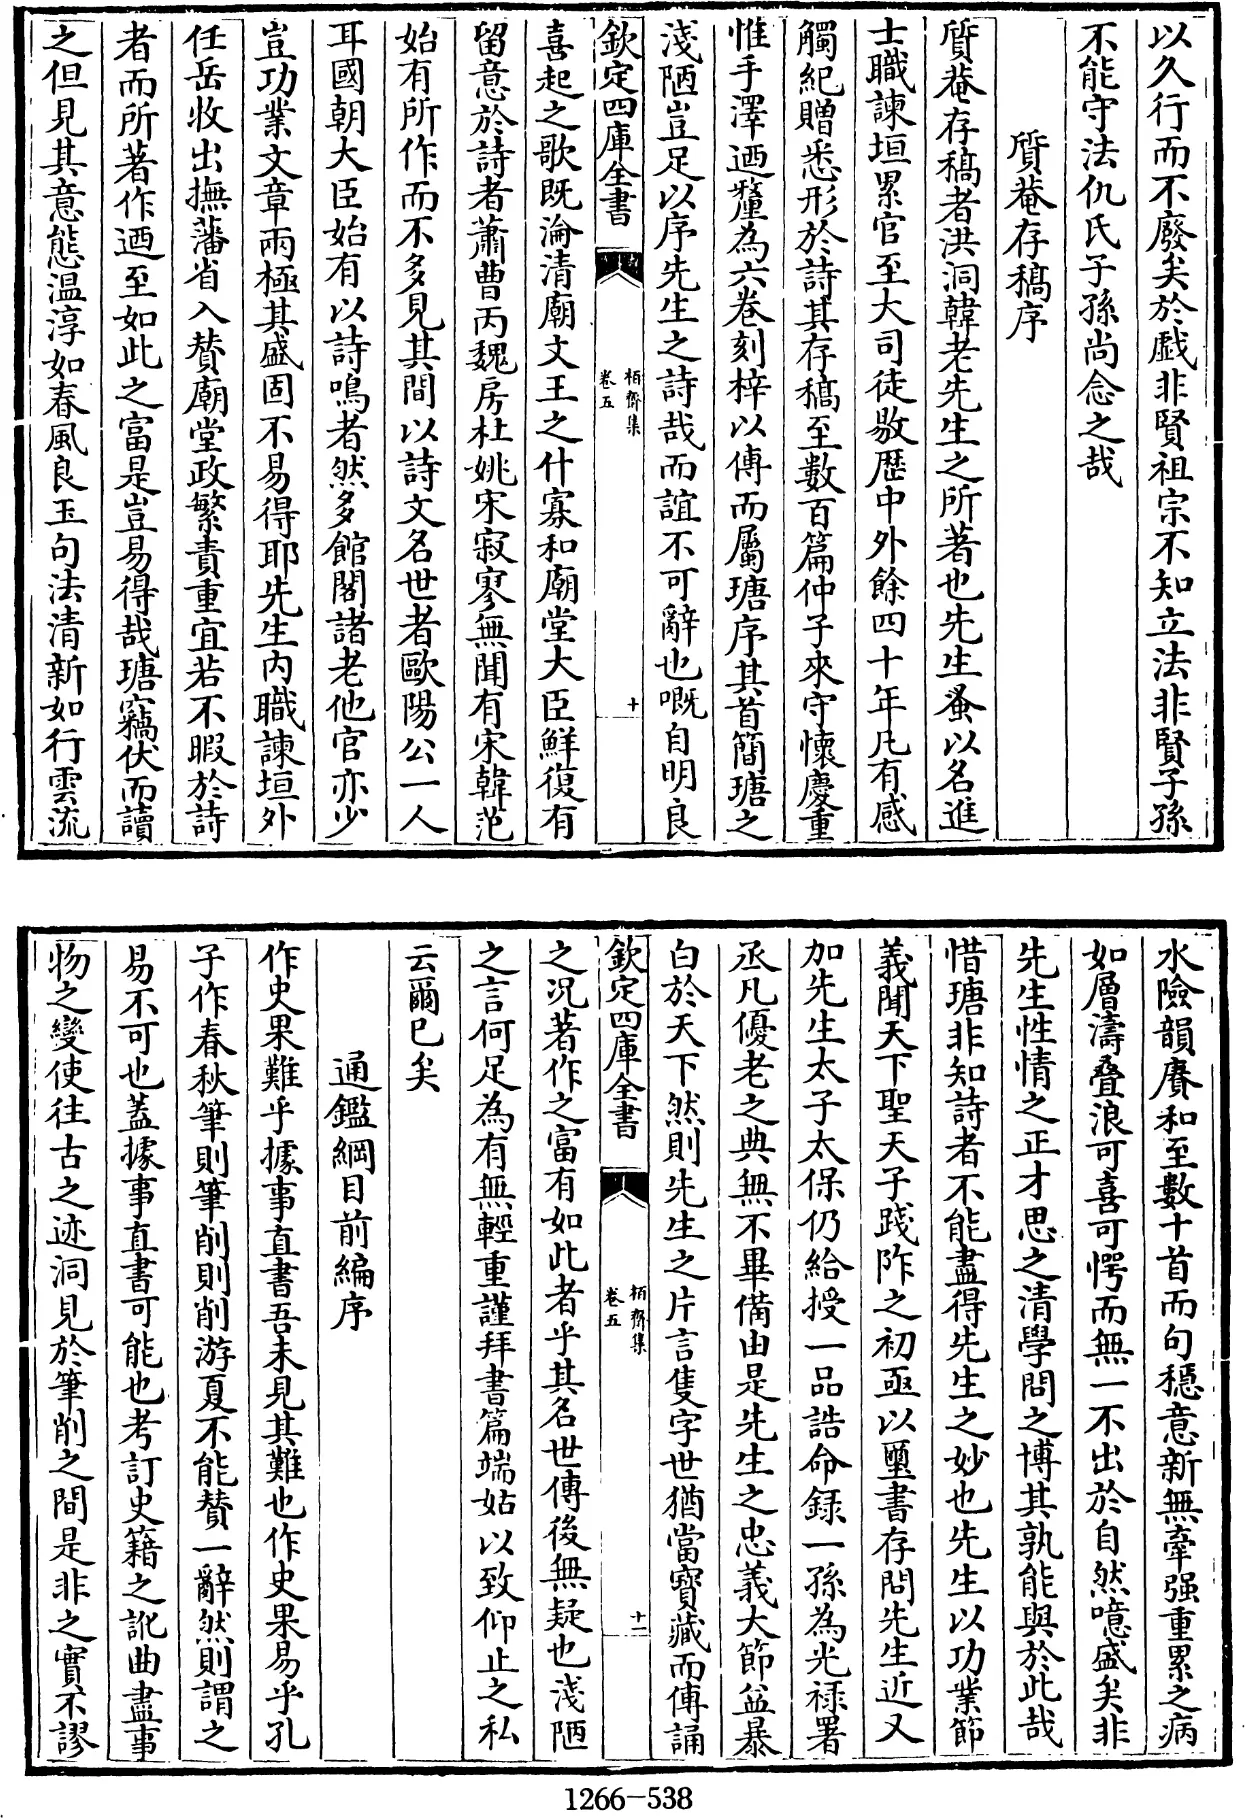 以久行而不廢矣於戲非賢祖宗不知立法非賢子孫
不能守法仇氏子孫尚念之哉
質菴存稿序
質菴存稿者洪洞韓老先生之所著也先生蚤以名進
士職諫垣累官至大司徒敭歷中外餘四十年凡有感
觸紀贈悉形於詩其存稿至數百篇仲子來守懷慶重
惟手澤迺釐為六卷刻梓以傳而屬瑭序其首簡瑭之
淺陋豈足以序先生之詩哉而誼不可辭也嘅自明良
欽定四庫全書
栢齋集
卷五
十
喜起之歌既淪清廟文王之什寡和廟堂大臣鮮復有
留意於詩者蕭曹丙魏房杜姚宋寂寥無聞有宋韓范
始有所作而不多見其間以詩文名世者歐陽公一人
耳國朝大臣始有以詩鳴者然多館閣諸老他官亦少
豈功業文章兩極其盛固不易得耶先生內職諫垣外
任岳牧出撫藩省入贊廟堂政繁責重宜若不暇於詩
者而所著作迺至如此之富是豈易得哉瑭竊伏而讀
之但見其意態温淳如春風良玉句法清新如行雲流
水險韻賡和至數十首而句穩意新無牽强重累之病
如層濤叠浪可喜可愕而無一不出於自然噫盛矣非
先生性情之正才思之清學問之博其孰能與於此哉
惜瑭非知詩者不能盡得先生之妙也先生以功業節
義聞天下聖天子踐阼之初亟以璽書存問先生近又
加先生太子太保仍給授一品誥命録一孫為光禄署
丞凡優老之典無不畢備由是先生之忠義大節益暴
白於天下然則先生之片言隻字世猶當寶藏而傳誦
欽定四庫全書
栢齋集
卷五
十一
之况著作之富有如此者乎其名世傳後無疑也淺陋
之言何足為有無輕重謹拜書篇端姑以致仰止之私
云爾已矣
通鑑綱目前編序
作史果難乎據事直書吾未見其難也作史果易乎孔
子作春秋筆則筆削則削游夏不能贊一辭然則謂之
易不可也蓋據事直書可能也考訂史籍之訛曲盡事
物之變使往古之迹洞見於筆削之間是非之實不謬
1266-538